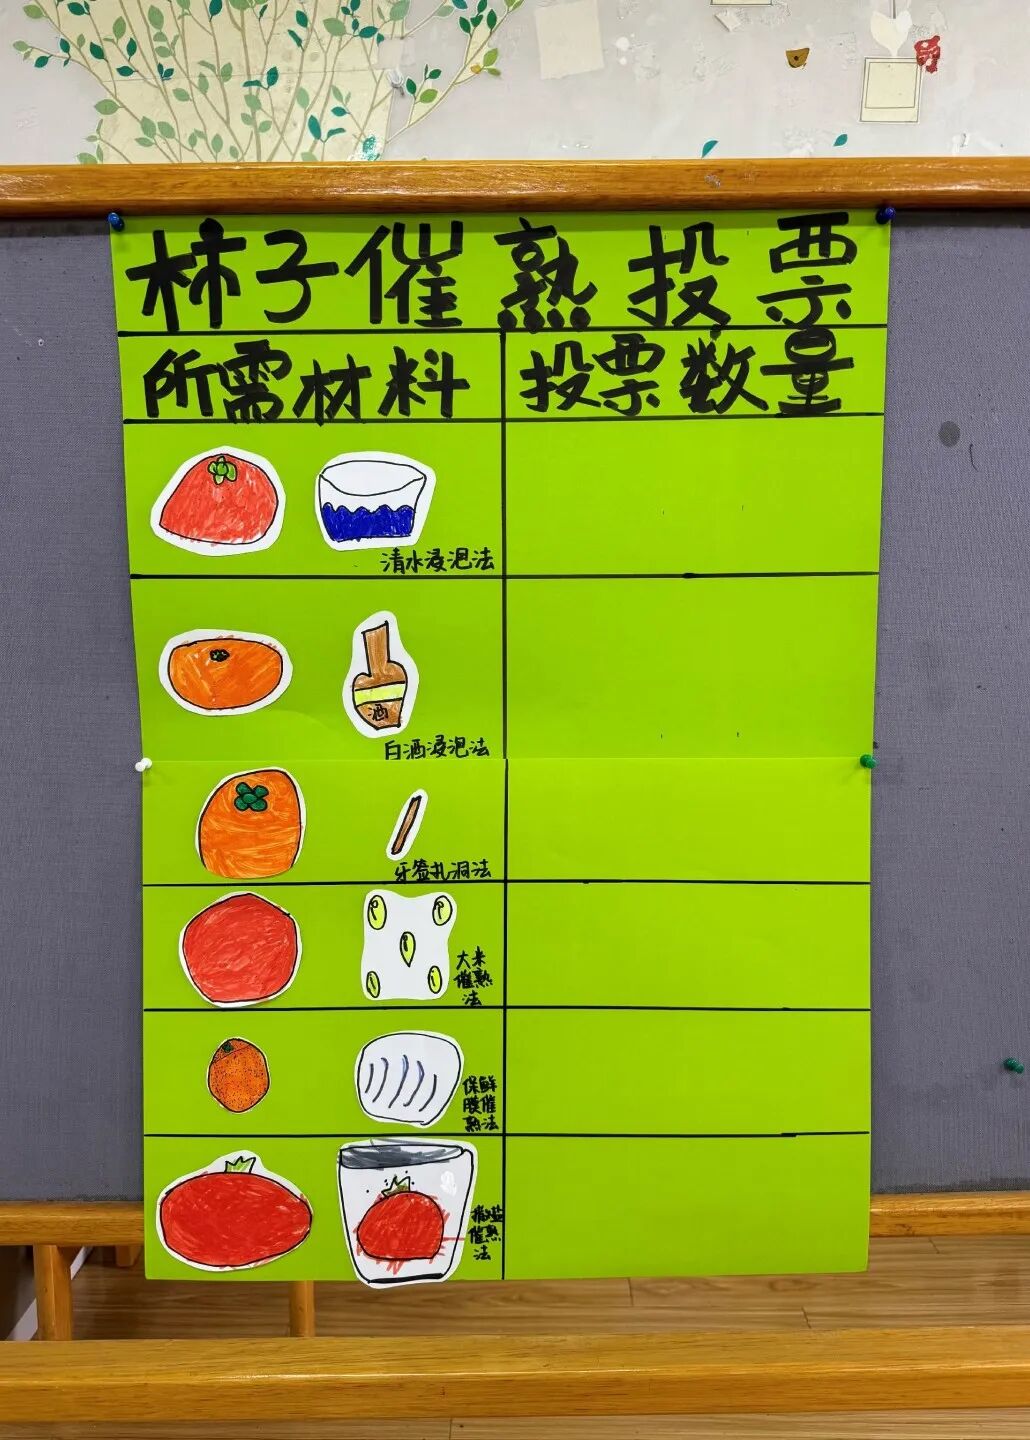 柿子催熟投票
所需材料 投票数量
清水浸泡法
酒
白酒浸泡法
牙签扎洞法
大米
催熟
法
保鲜
膜催
熟法
撒盐
催熟
法